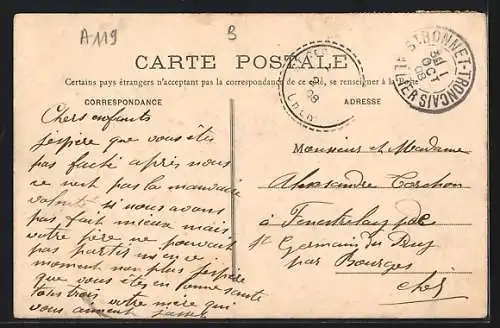 A119
B
CARTE POSTALE
Certains pays étrangers n'acceptant pas la correspondance de ce côté, se renseigner à la Poste
CORRESPONDANCE
ADRESSE
St BONNET-TRONCAIS
ALLIER
OCT
08
Chers enfants
J'espère que vous êtes
pas faché après nous
ce n'est pas la mauvaise
volonté si nous avons
pas fait mieux mais
votre père ne pouvait
pas
moment non plus J'espère
que vous êtes en bonne santé
tous trois votre mère qui
vous aiment
Monsieur et Madame
Alexandre
à
St Germain du Puy
par Bourges
Cher